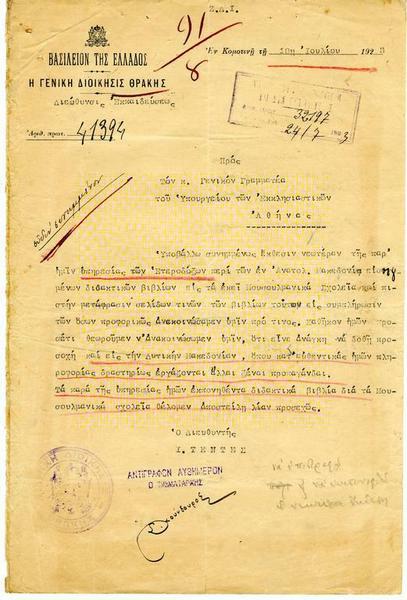 Ζ.Δ.Ι.
91/8
ΒΑΣΙΛΕΙΟΝ ΤΗΣ ΕΛΛΑΔΟΣ
Η ΓΕΝΙΚΗ ΔΙΟΙΚΗΣΙΣ ΘΡΑΚΗΣ
Διεύθυνσις Ἐκπαιδεύσεως
Ἀριθ. πρωτ. 41394
Ἐν Κομοτινῇ τῇ 10ῃ Ἰουλίου 1923
32197
24/7 1923
Πρὸς
Τὸν κ. Γενικὸν Γραμματέα
τοῦ Ὑπουργείου τῶν Ἐκκλησιαστικῶν
Ἀθήνας
Ὑποβάλλω συνημμένως ἔκθεσιν νεωτέραν τῆς παρ'
ἡμῖν ὑπηρεσίας τῶν Ἑτεροδόξων περὶ τῶν ἐν Ἀνατολ. Μακεδονίᾳ
μένων διδακτικῶν βιβλίων εἰς τὰ ἐκεῖ Μουσουλμανικὰ Σχολεῖα καὶ
πιστὴν μετάφρασιν σελίδων τινῶν τῶν βιβλίων τούτων εἰς συμπλήρωσιν
τῶν ὅσων προφορικῶς Ἀνακοινώσαμεν ὑμῖν πρό τινος. Καθῆκον ἡμῶν
θεωροῦμεν ν'Ἀνακοινώσωμεν ὑμῖν, ὅτι εἶνε Ἀνάγκη νὰ δοθῇ προ
σοχὴ καὶ εἰς τὴν Δυτικὴν Μακεδονίαν, ὅπου κατ' αὐθεντικὰς ἡμῶν πλη
ροφορίας δραστηρίως ἐργάζονται ἄλλαι ξέναι προπαγάνδαι.
Τὰ παρὰ τῆς ὑπηρεσίας ἡμῶν ἐκπονηθέντα διδακτικὰ βιβλία διὰ τὰ Μου
σουλμανικὰ σχολεῖα θέλομεν Ἀποστείλῃ λίαν προσεχῶς.
Ὁ Διευθυντὴς
Ι. ΤΕΝΤΕΣ
ΑΝΤΙΓΡΑΦΟΝ ΑΥΘΗΜΕΡΟΝ
Ο ΤΜΗΜΑΤΑΡΧΗΣ